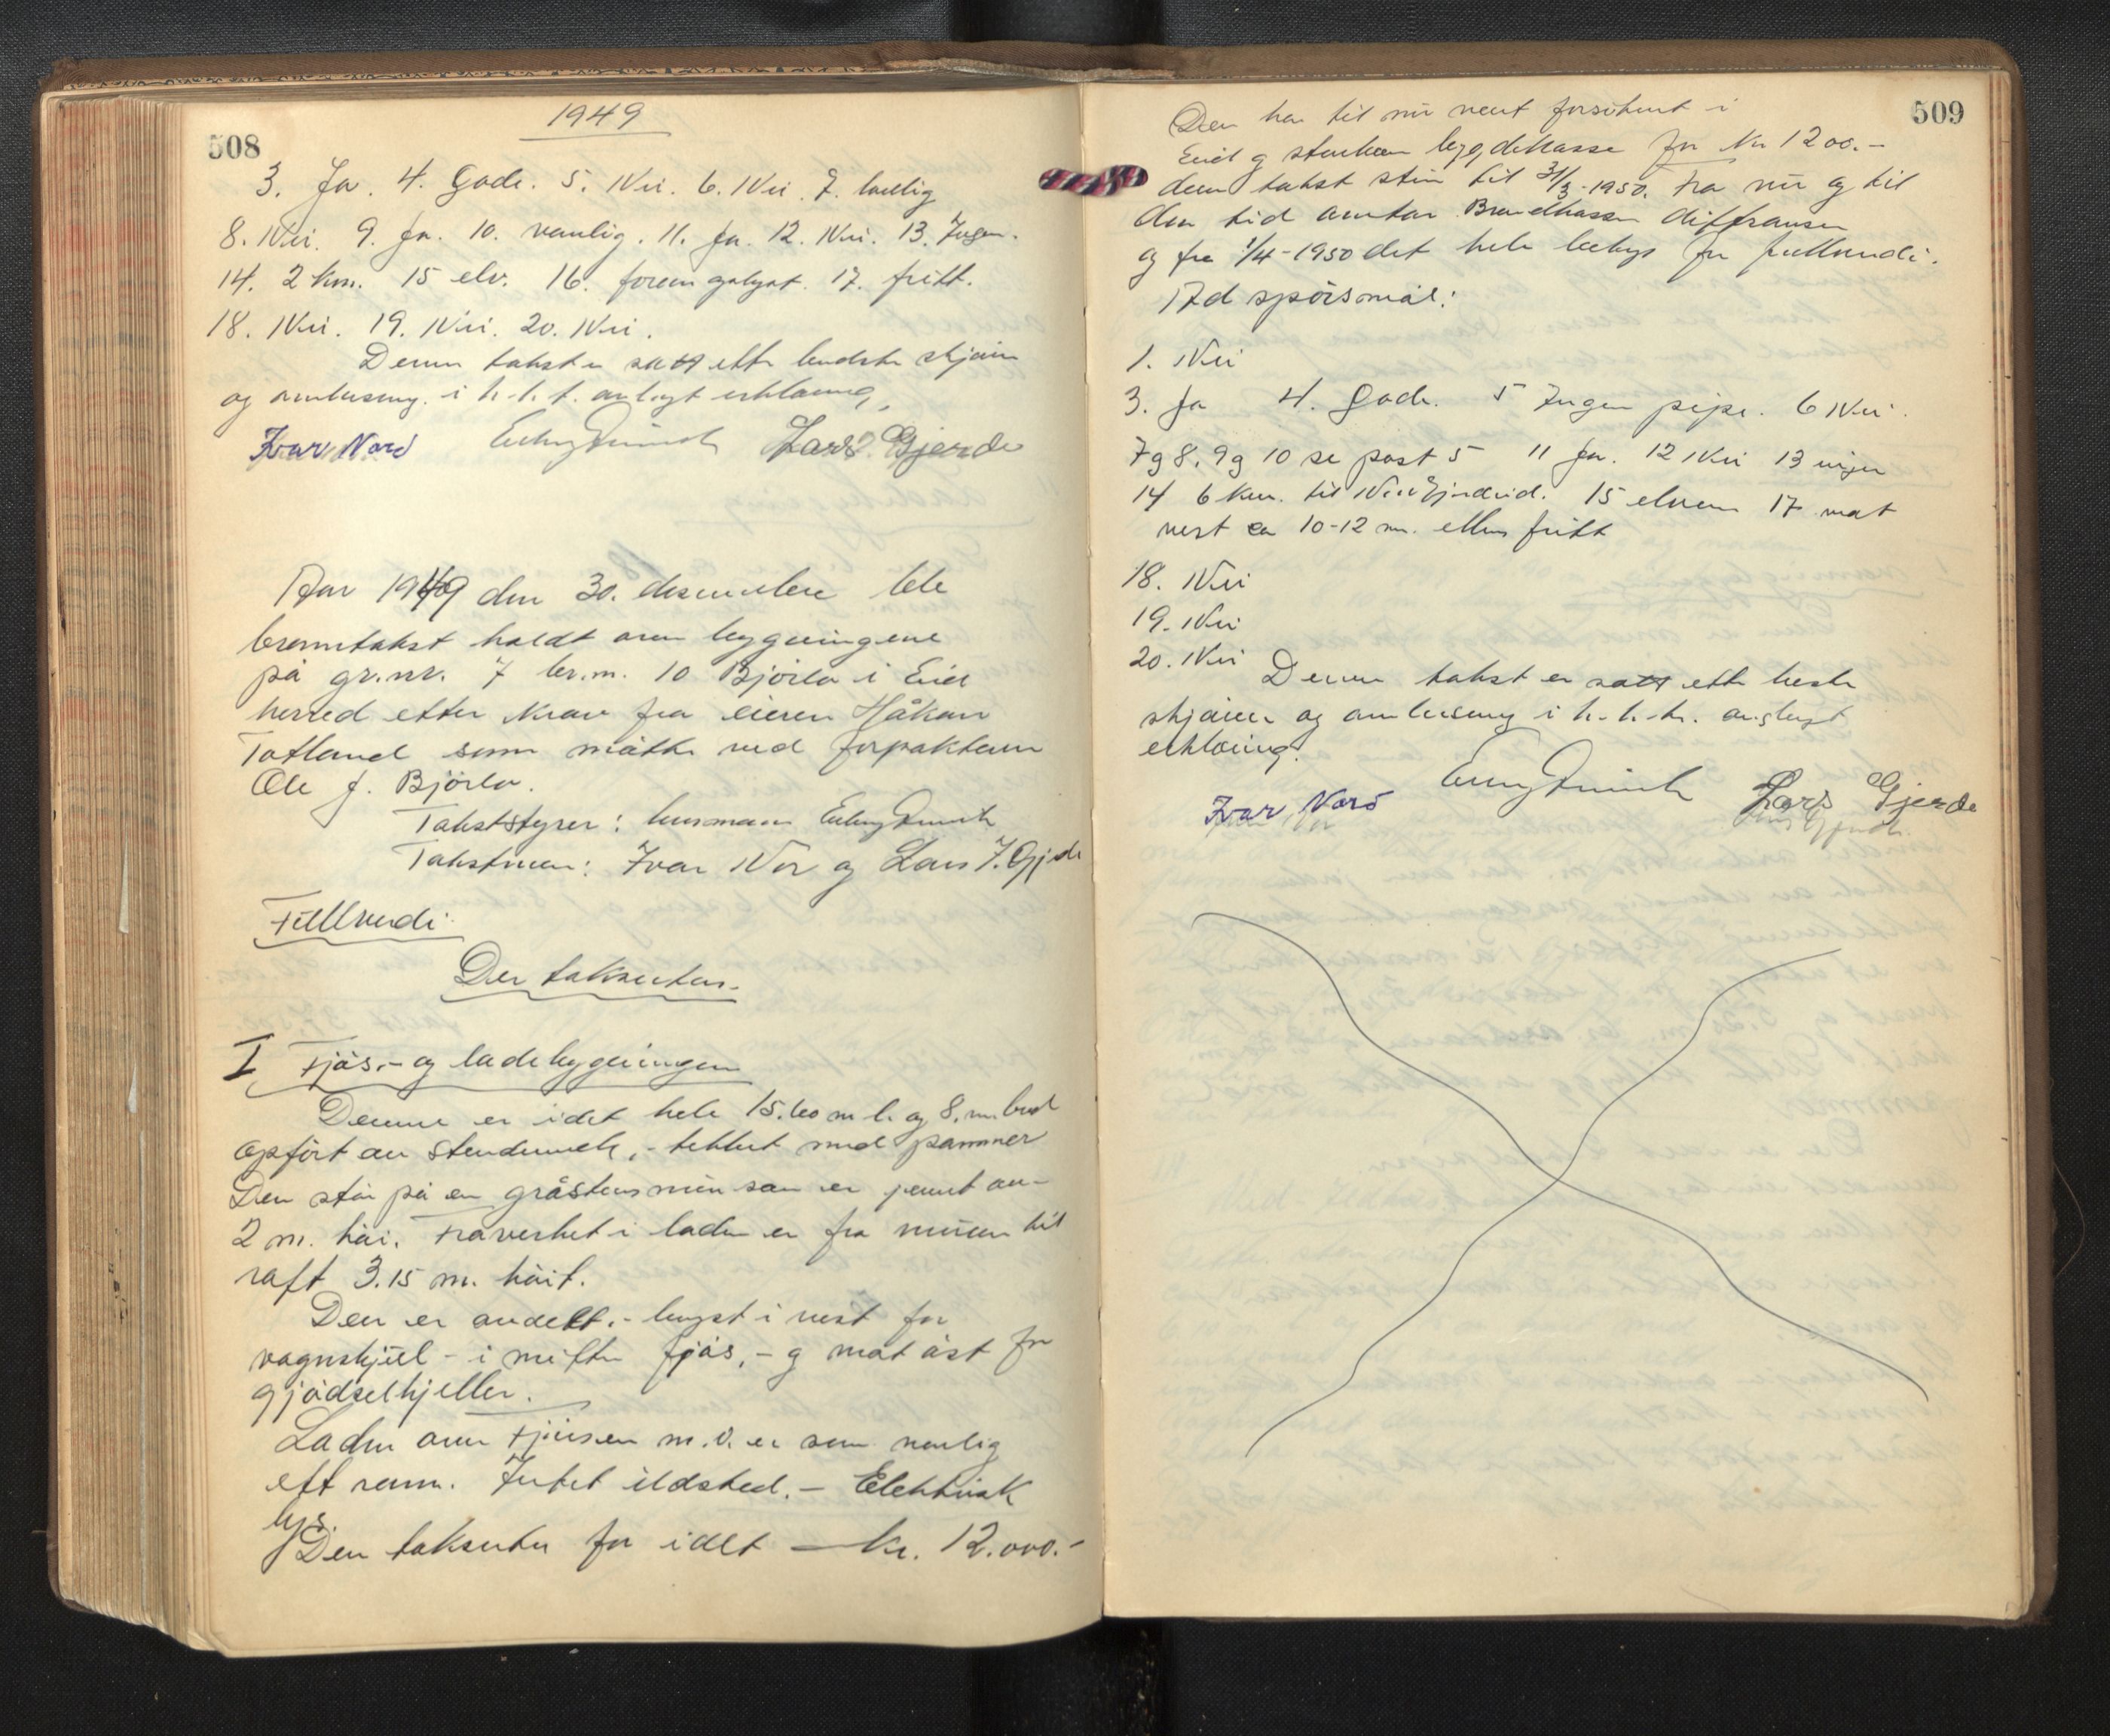 1949
508
3. Ja. 4. Gode. 5. Nei. 6. Nei 7. vanlig
8. Nei. 9. Ja. 10. vanlig. 11. Ja. 12. Nei. 13. Ingen.
14. 2 km. 15 elv. 16. 17. fritt.
18. Nei. 19. Nei. 20. Nei.
Denne takst er satt efter beste skjönn
og overbevisning i h.h.t. avlagt erklæring.
Ivar Nord Lars Gjerde
Aar 1949 den 30. desember ble
branntakst holdt over bygningene
på gr.nr. 7 br.nr. 10 Bjørlo i Eid
herred etter krav fra eieren Håkon
Totland som møtte ved forpakteren
Ole J. Bjørlo.
Takststyrer: lensmann
Takstmenn: Ivar Nor og Lars J. Gjerde
Fullverdi.
Der taksertes.
I Fjös.- og ladebygningen
Denne er i det hele 15.60 m l. og 8. m bred
opført av stenderverk, - tekket med panner
Den står på en gråstensmur som er jevnt over
2 m. höi. Traverket i laden er fra muren til
raft 3.15 m. höit.
Den er avdelt. - lengst i vest for
vognskjul - i midten fjös, - og mot öst for
gjødselkjeller.
Laden over fjösen m.v. er som vanlig
ett rum. Intet ildsted. - Elektrisk
lys.
Den takseres for i det — kr. 12.000.-
509
Den har til nu vært forsikret i
Eid og bygdekasse for kr 1200.-
denne takst står til 31/3-1950. Fra nu og til
den tid overtar Brandkassen differansen
og fra 1/4-1950 det hele beløp for fullverdi.
Ad spørsmål:
1. Nei
3. Ja 4. Gode. 5 Ingen pipe. 6 Nei.
7 g 8. 9 g 10 se post 5 11 Ja. 12 Nei 13 ingen
14 6 km. til 15 elven 17 mot
vest ca 10-12 m. ellers fritt
18. Nei
19. Nei
20. Nei
Denne takst er satt efter beste
skjønn og overbevisning i h.h.t. avlagt
erklæring.
Ivar Nord Lars Gjerde